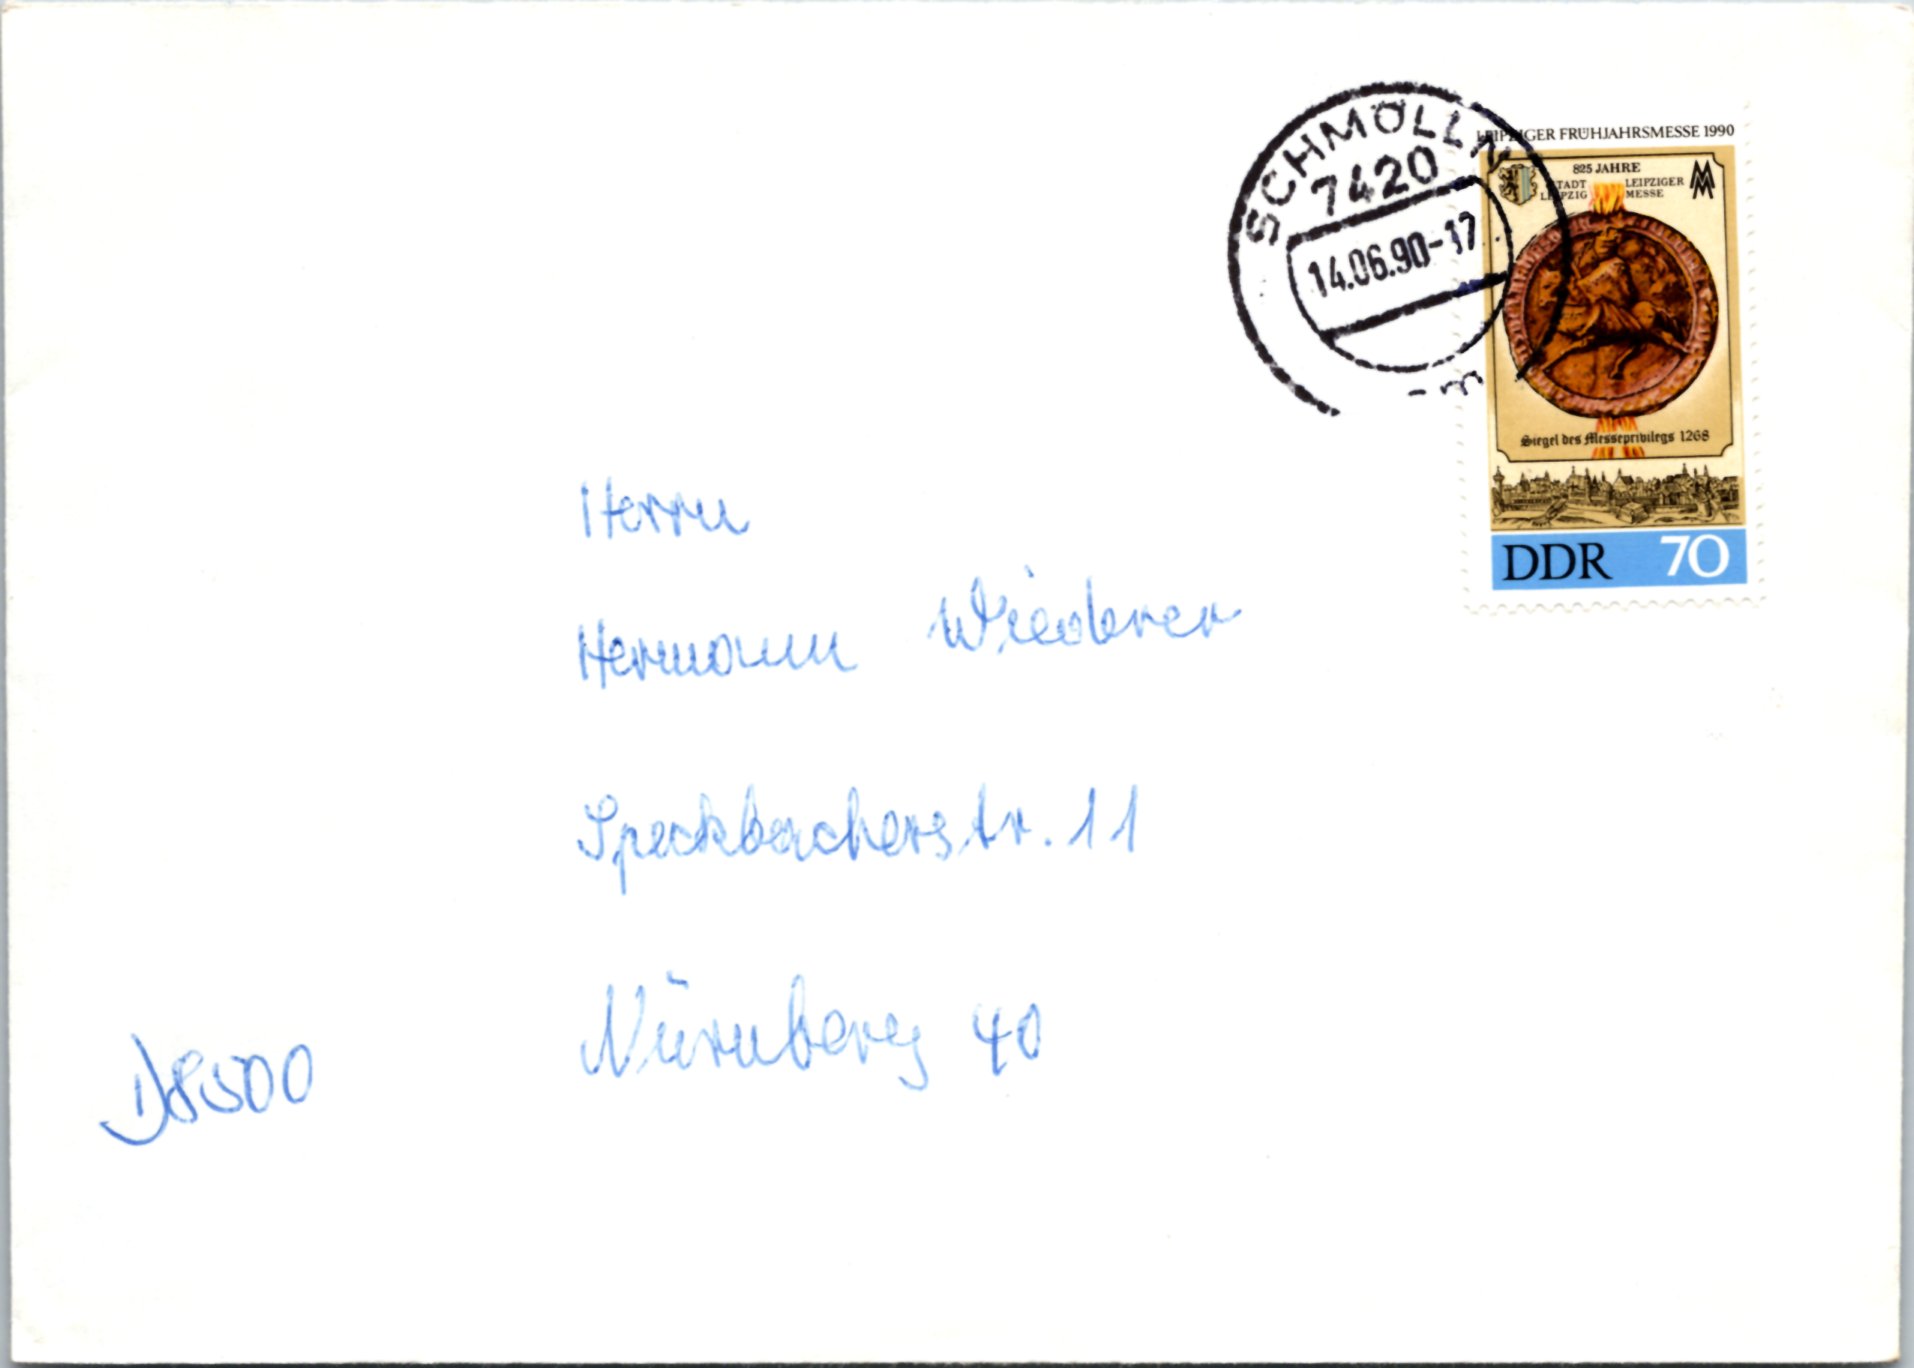 SCHMÖLLN
7420
14.06.90-17
LEIPZIGER FRÜHJAHRSMESSE 1990
825 JAHRE
STADT LEIPZIG
LEIPZIGER MESSE
MM
Siegel des Messeprivilegs 1268
DDR 70
Herrn
Hermann Wiederer
Speckbacherstr. 11
Nürnberg 40
D8500